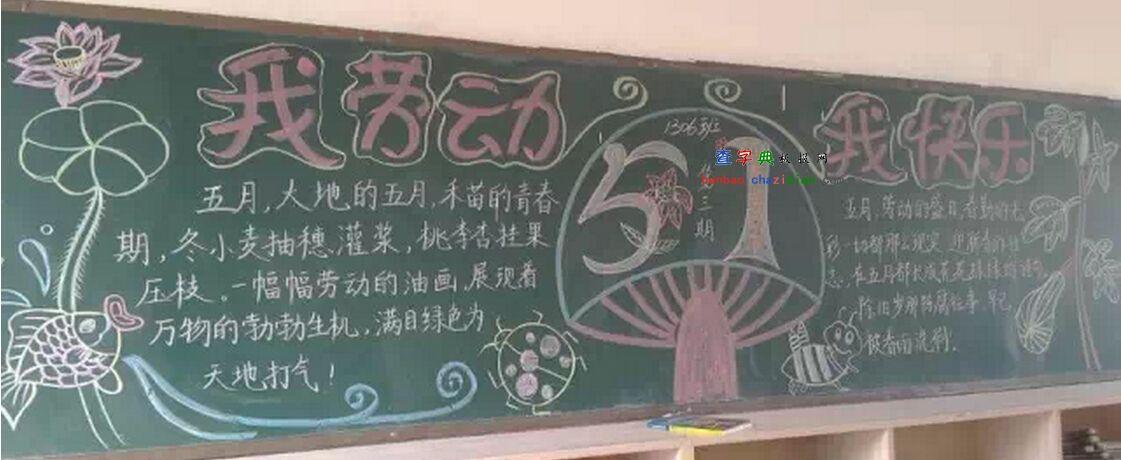 我劳动
我快乐
五月，大地的五月，禾苗的青春
期，冬小麦抽穗灌浆，桃李杏挂果
压枝。一幅幅劳动的油画，展现着
万物的勃勃生机，满目绿色为
天地打气！
1306班
51
三期
查字典板报网
chazidian
五月，劳动的盛日，
彩一切都那么现实
在五月都长成
被春雨流刷.